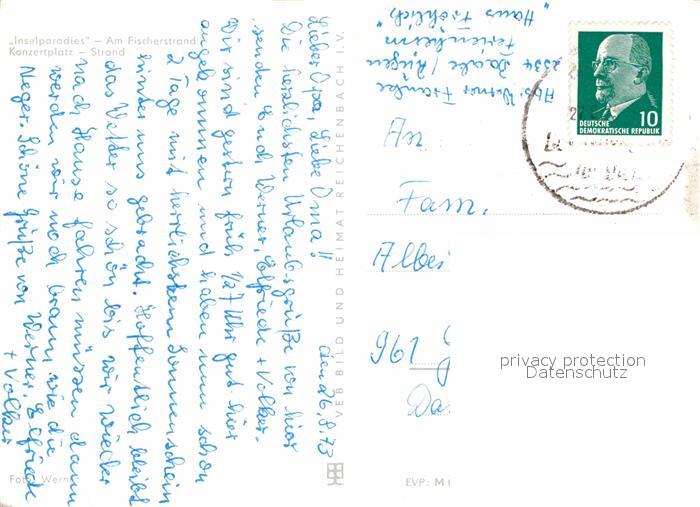 „Inselparadies" — Am Fischerstrand
Konzertplatz — Strand
den 26.8.73
Lieber Opa, Liebe Oma!!
Die herzlichsten Urlaubsgrüße von hier
senden Euch Werner, Elfriede + Volker.
Wir sind gestern früh 1/27 Uhr gut hier
angekommen und haben nun schon
2 Tage mit herrlichstem Sonnenschein
hinter uns gebracht. Hoffentlich bleibt
das Wetter so schön bis wir wieder
nach Hause fahren müssen dann
werden wir noch braun wie die
Neger. Schöne Grüße von Werner, Elfriede
+ Volker
Foto: Werne
VEB BILD UND HEIMAT REICHENBACH I.V.
Abs: Werner Franke
2334 Baabe / Rügen
Ferienheim
"Haus Fröhlich"
DEUTSCHE
DEMOKRATISCHE REPUBLIK
10
An
Fam.
Albe
961 G
Da
EVP: M
privacy protection
Datenschutz